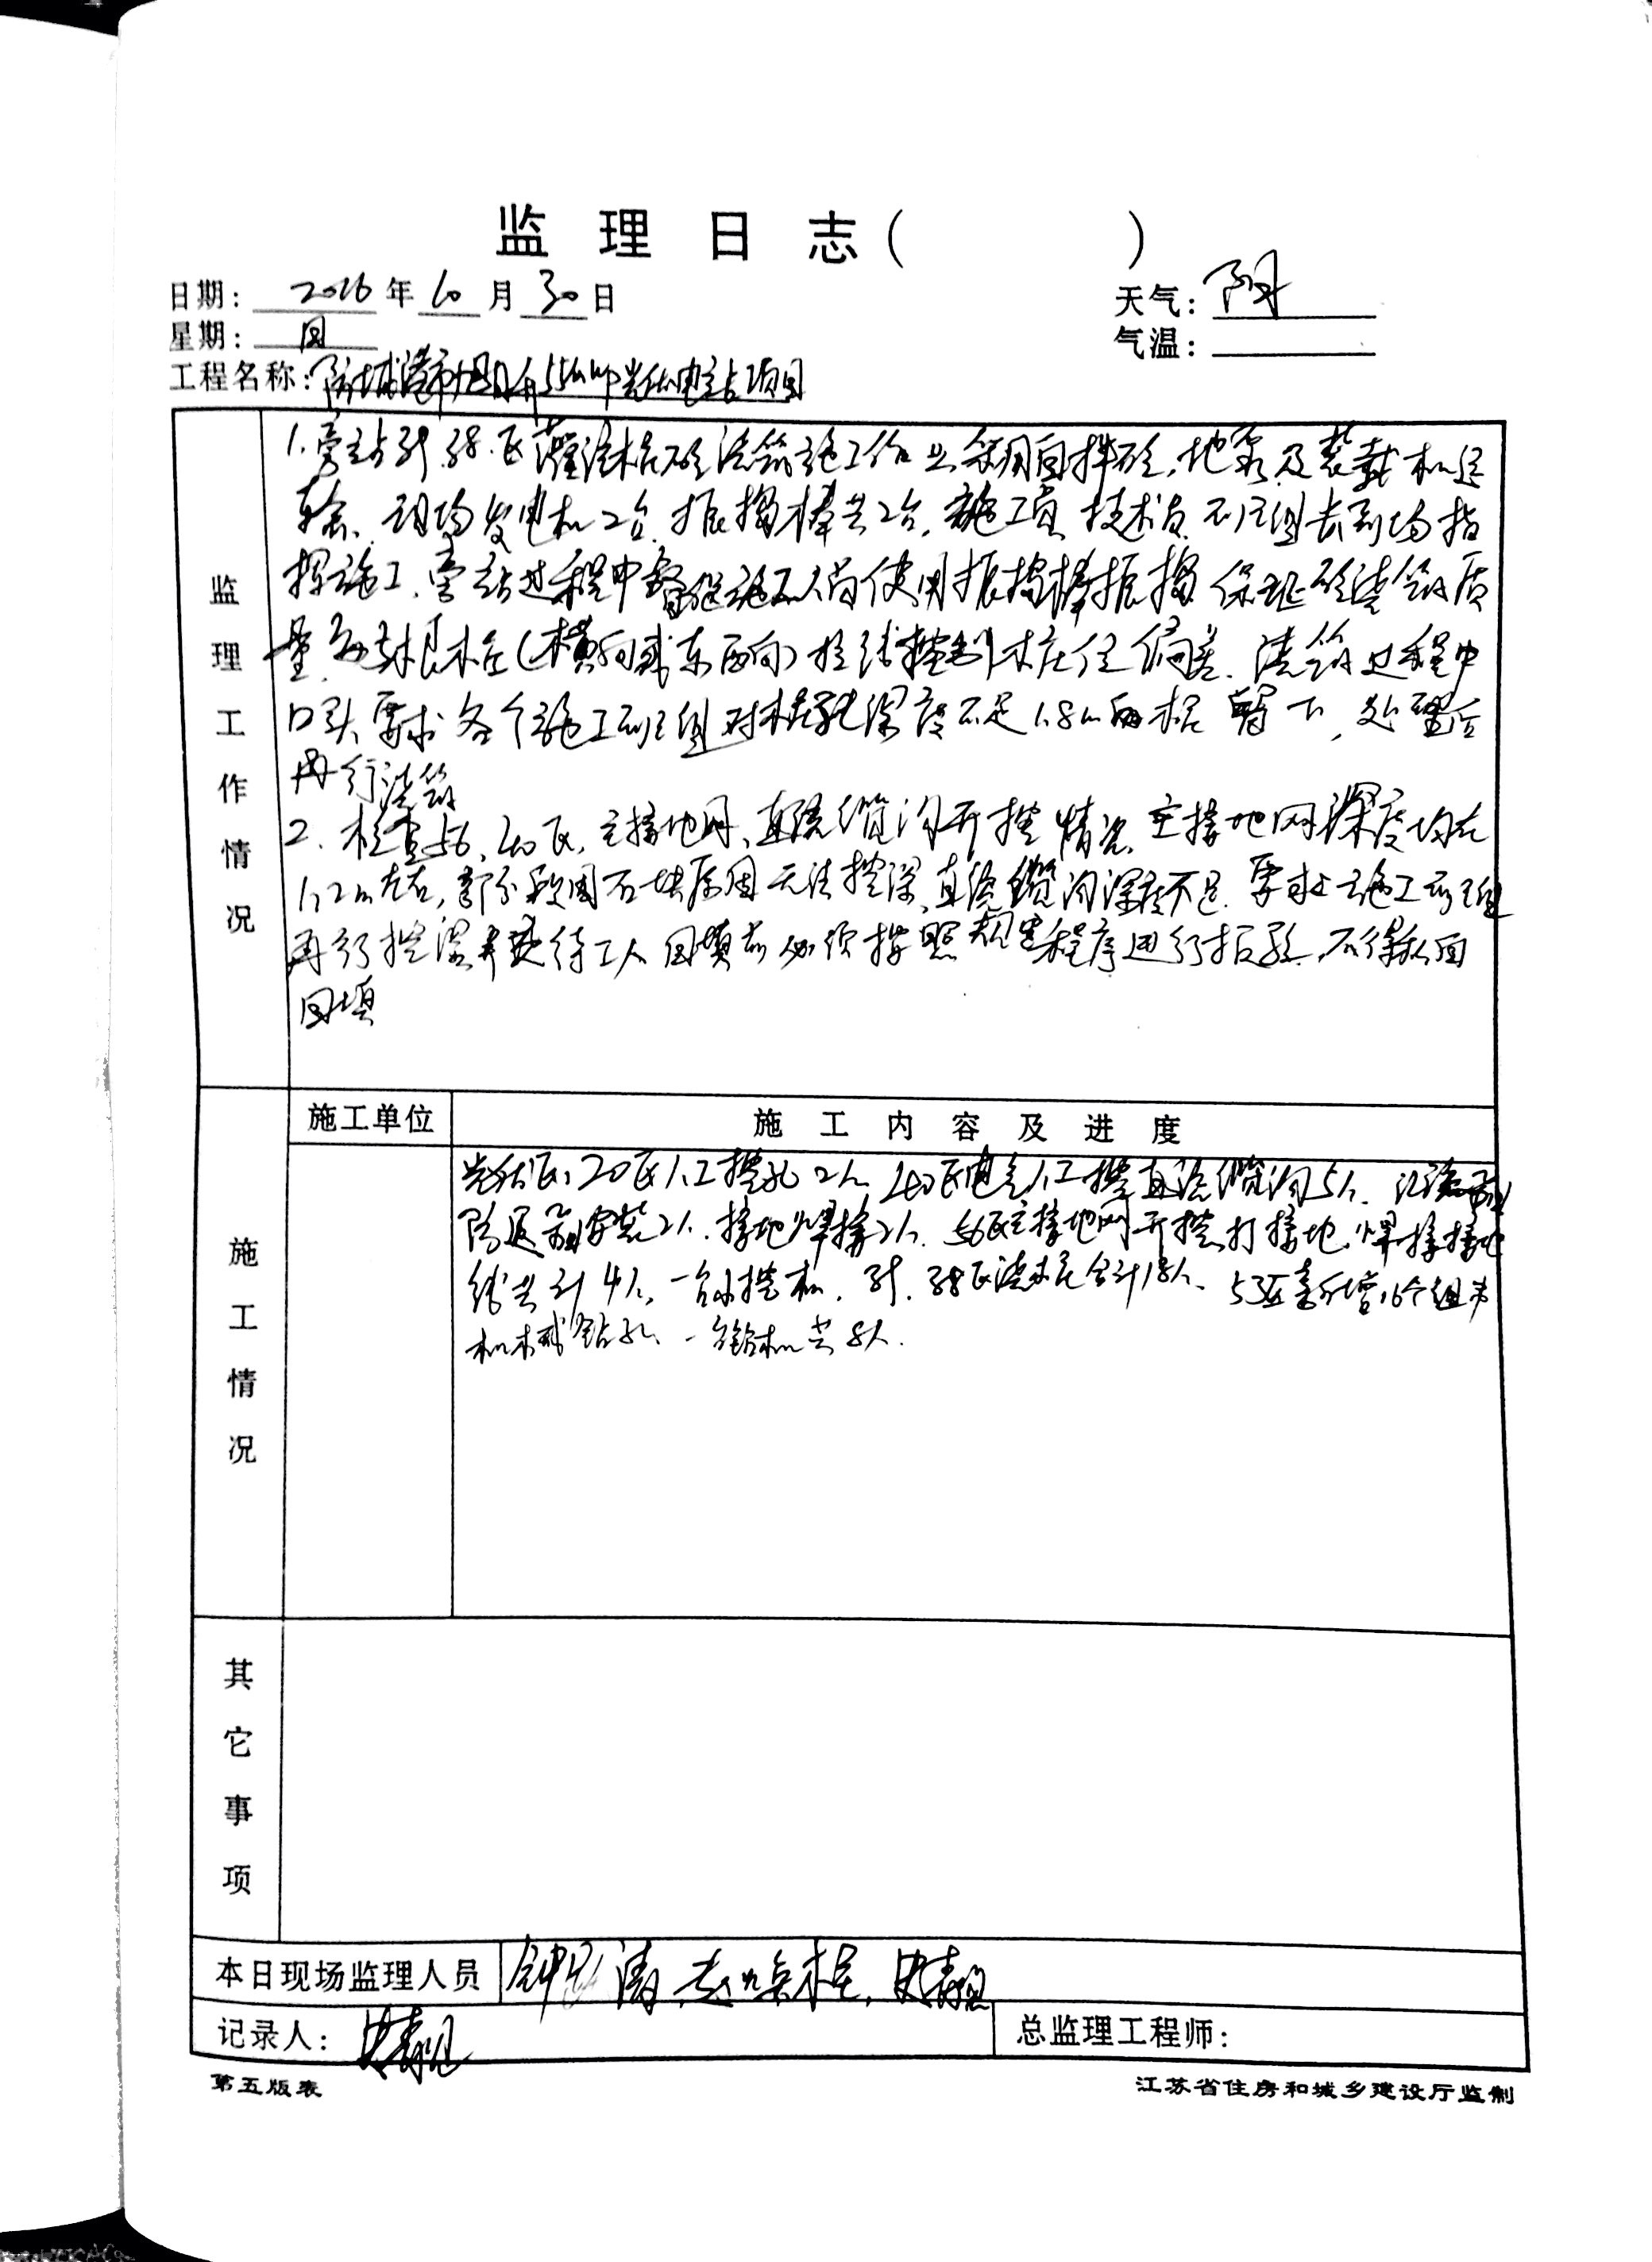 监 理 日 志 ( )
日期: 2016 年 10 月 30 日
天气: 阴
星期: 日
气温:
工程名称: 防城港市旭日升55MWP光伏电站项目
监理工作情况
1.旁站31.38.区灌注桩砼浇筑施工作业,采用自拌砼,地泵及装载机运
输、现场发电机2台,振捣棒共2台,施工员、技术员、班组长到场指
挥施工,旁站过程中督促施工人员使用振捣棒振捣,保证砼浇筑质
量,每排桩(横向或东西向)拉线控制桩位偏差,浇筑过程中
口头要求各个施工班组对桩孔深度不足1.8m的桩留下,处理后
再行浇筑
2.检查56、40区,主接地网、直流缆沟开挖情况,主接地网深度均在
1.2m左右,部分段因石块原因无法挖深,直流缆沟深度不足,要求施工班组
再行挖深并交待工人回填前必须按照规定程序进行报验,不得私自
回填
施工单位
施 工 内 容 及 进 度
施工情况
光伏区:20区人工挖孔2人,40区电气人工挖直流缆沟5人,汇流箱
2人,接地焊接2人,56区主接地网开挖,打接地,焊接接地
线共计4人,一台小挖机,31.38区浇桩合计18人,
机械钻孔,一台钻机共8人.
其它事项
本日现场监理人员
记录人:
总监理工程师:
第五版表
江苏省住房和城乡建设厅监制